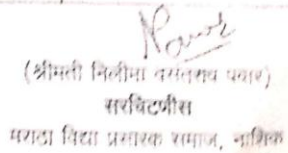 (श्रीमती निलीमा वसंतराव पवार)
सरचिटणीस
मराठा विद्या प्रसारक समाज, नाशिक